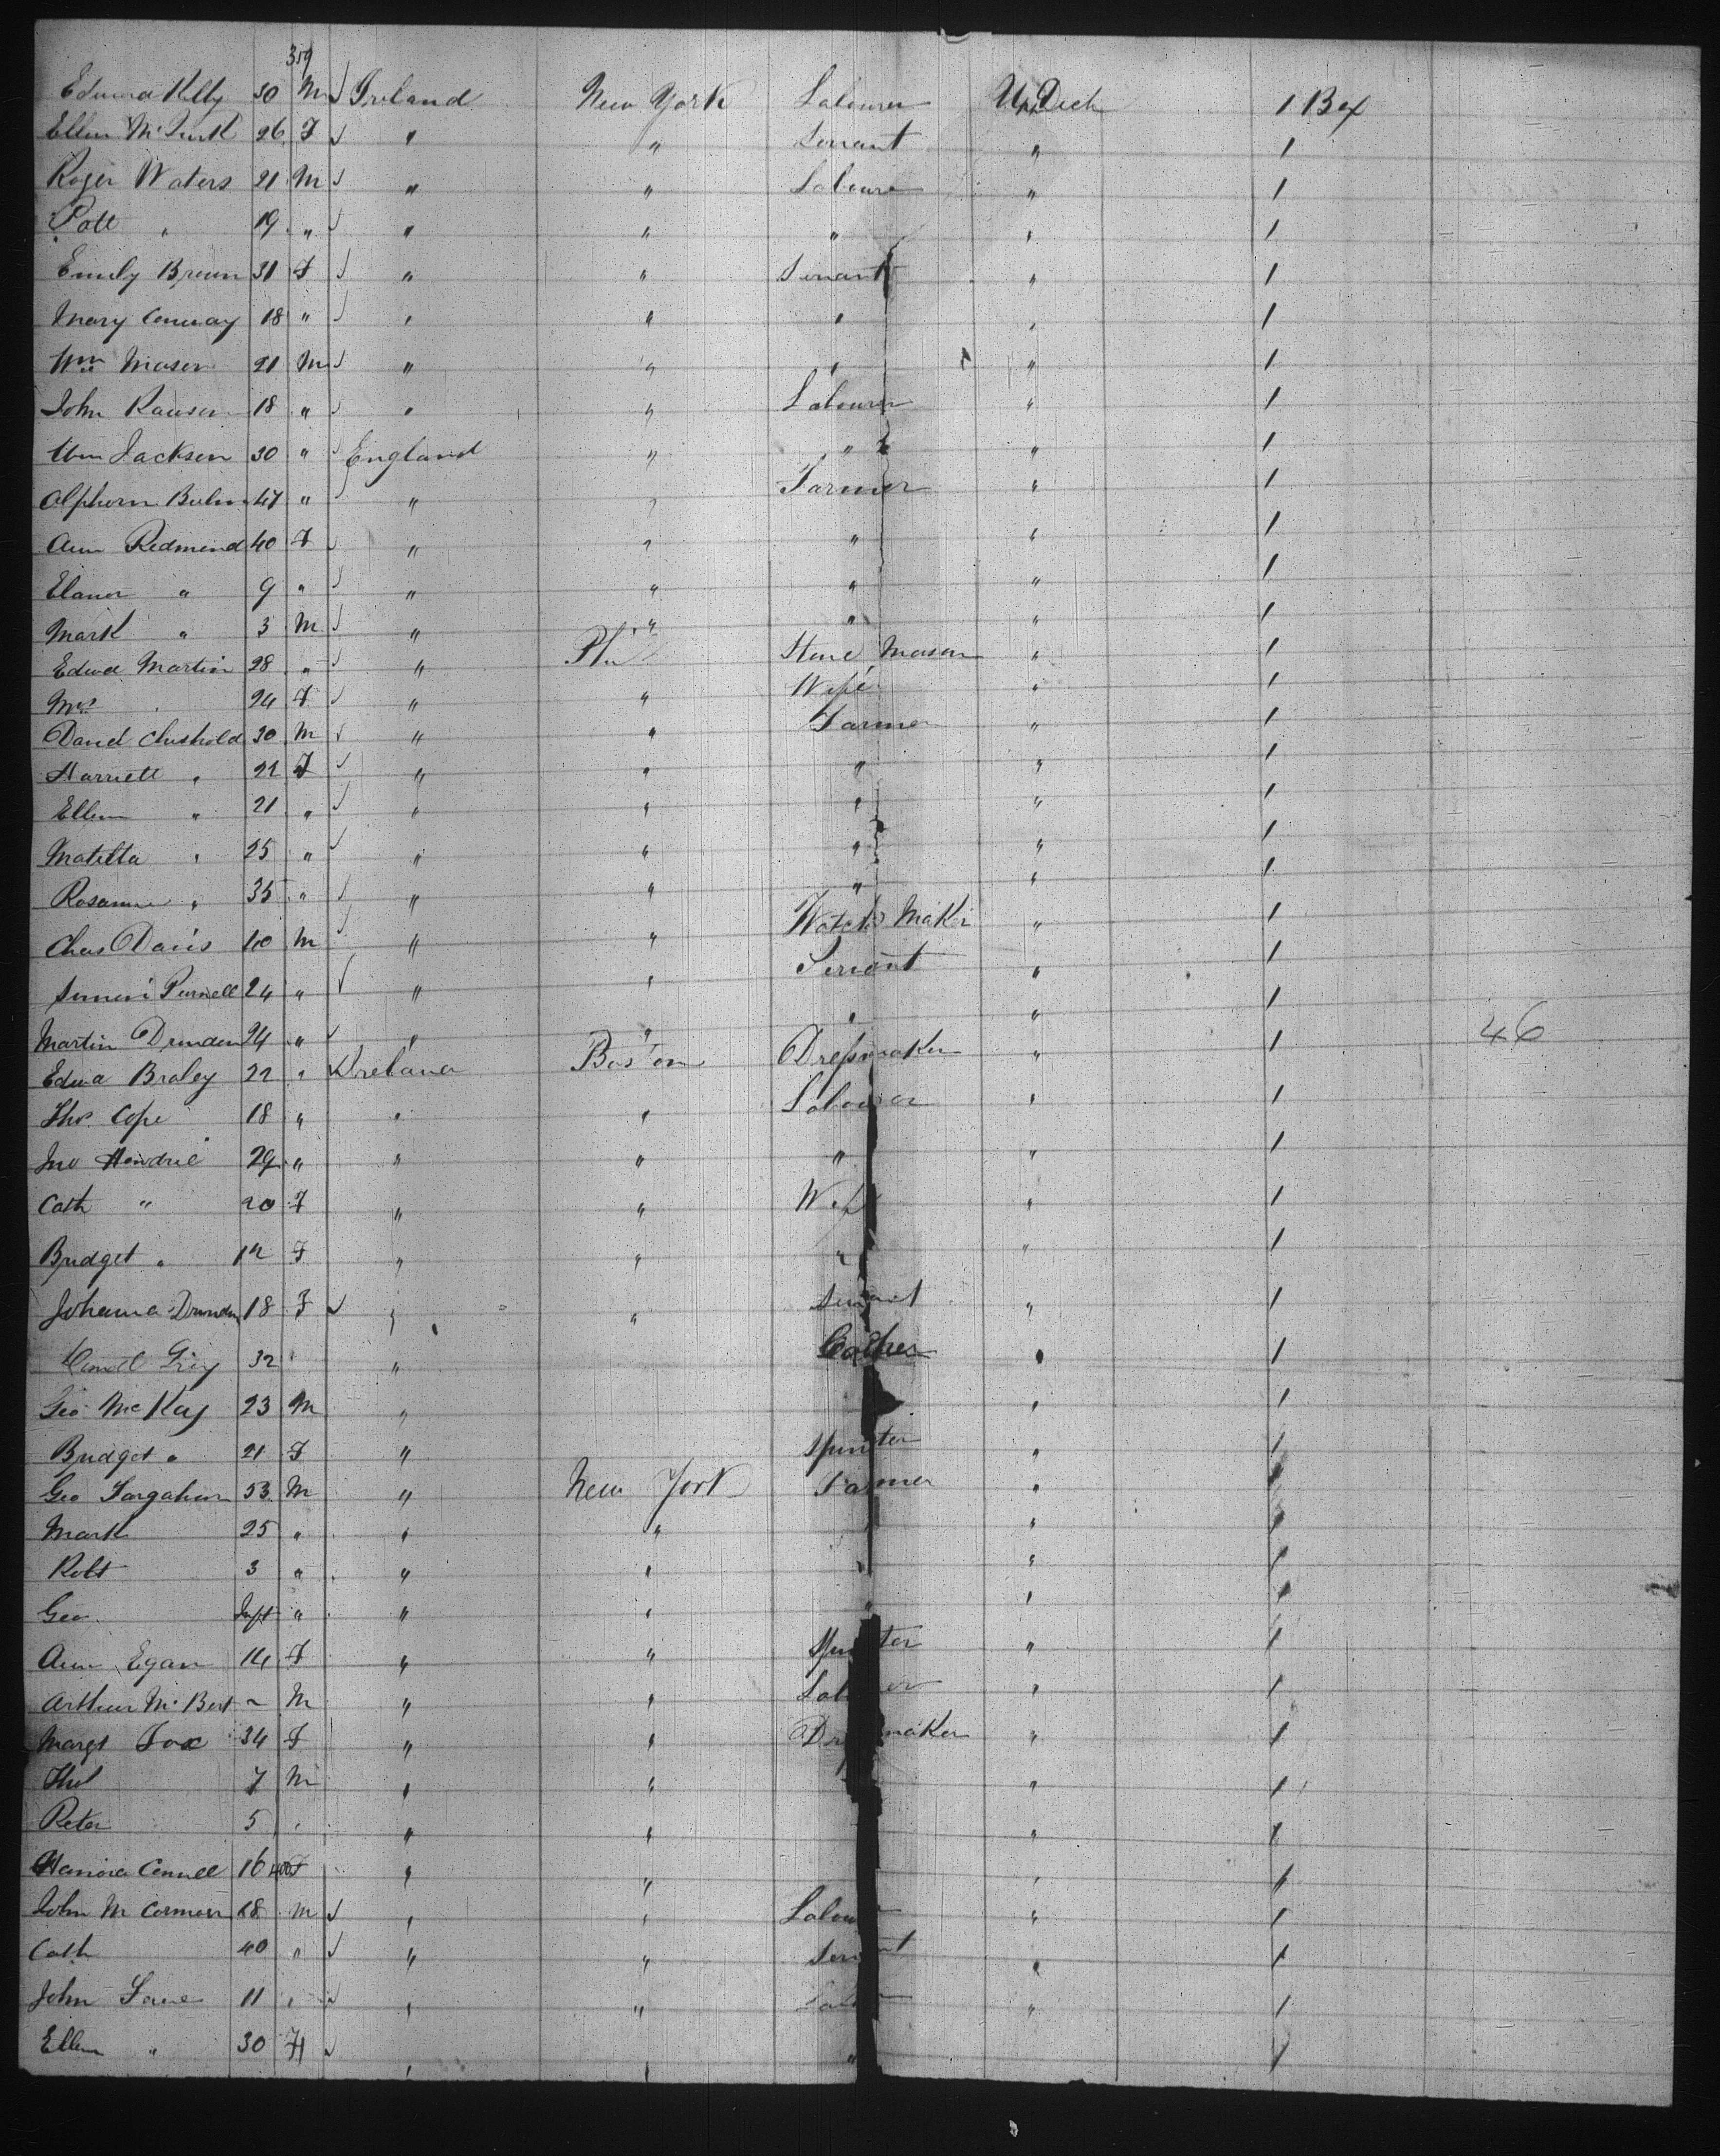 359
Edwd Kelly 30 M Ireland New York Labourer Up Deck 1 Box
Ellen 26 F " " Servant " 1
Roger Waters 21 M " " Labourer " 1
Patt " 19 " " " " " 1
Emily 31 F " " Servant " 1
Mary Conway 18 " " " " " 1
Wm Mason 21 M " " " " 1
John 18 " " " Labourer " 1
Wm Jackson 30 " England " " " 1
47 " " " Farmer " 1
Ann Redmond 40 F " " " " 1
Elanor " 9 " " " " " 1
Mark " 3 M " " " " 1
Edwd Martin 28 " " Stone Mason " 1
Mrs " 24 F " " Wife " 1
David 30 M " " Farmer " 1
Harriett " 22 F " " " " 1
Ellen " 21 " " " " " 1
Matilla " 25 " " " " " 1
Rosanna " 35 " " " " " 1
Chas Davis 40 M " " Watch Maker " 1
Purnell 24 " " " Servant " 1
Martin 24 " " " " " 1 46
Edwd Braley 22 " Ireland Boston Dressmaker " 1
Thos Cope 18 " " " Labourer " 1
Jno 29 " " " " " 1
Cath " 20 F " " Wife " 1
Bridget " 12 F " " " " 1
Johanna 18 F " " Servant " 1
32 " " " 1
Geo McKay 23 M " " 1
Bridget " 21 F " Spinster " 1
Geo 53 M " New York Farmer " 1
Mark 25 " " " " 1
Robt 3 " " " " " 1
Geo Inft " " " " " 1
Ann Egan 14 F " " Spinster " 1
Arthur ~ M " " " 1
Margt Fox 34 F " " " 1
7 M " " " 1
Peter 5 " " " " 1
Hanora Connell 16 F " " " 1
John 18 M " " Labour " 1
Cath 40 " " " " 1
John Lane 11 " " " " 1
Ellen " 30 F " " " 1